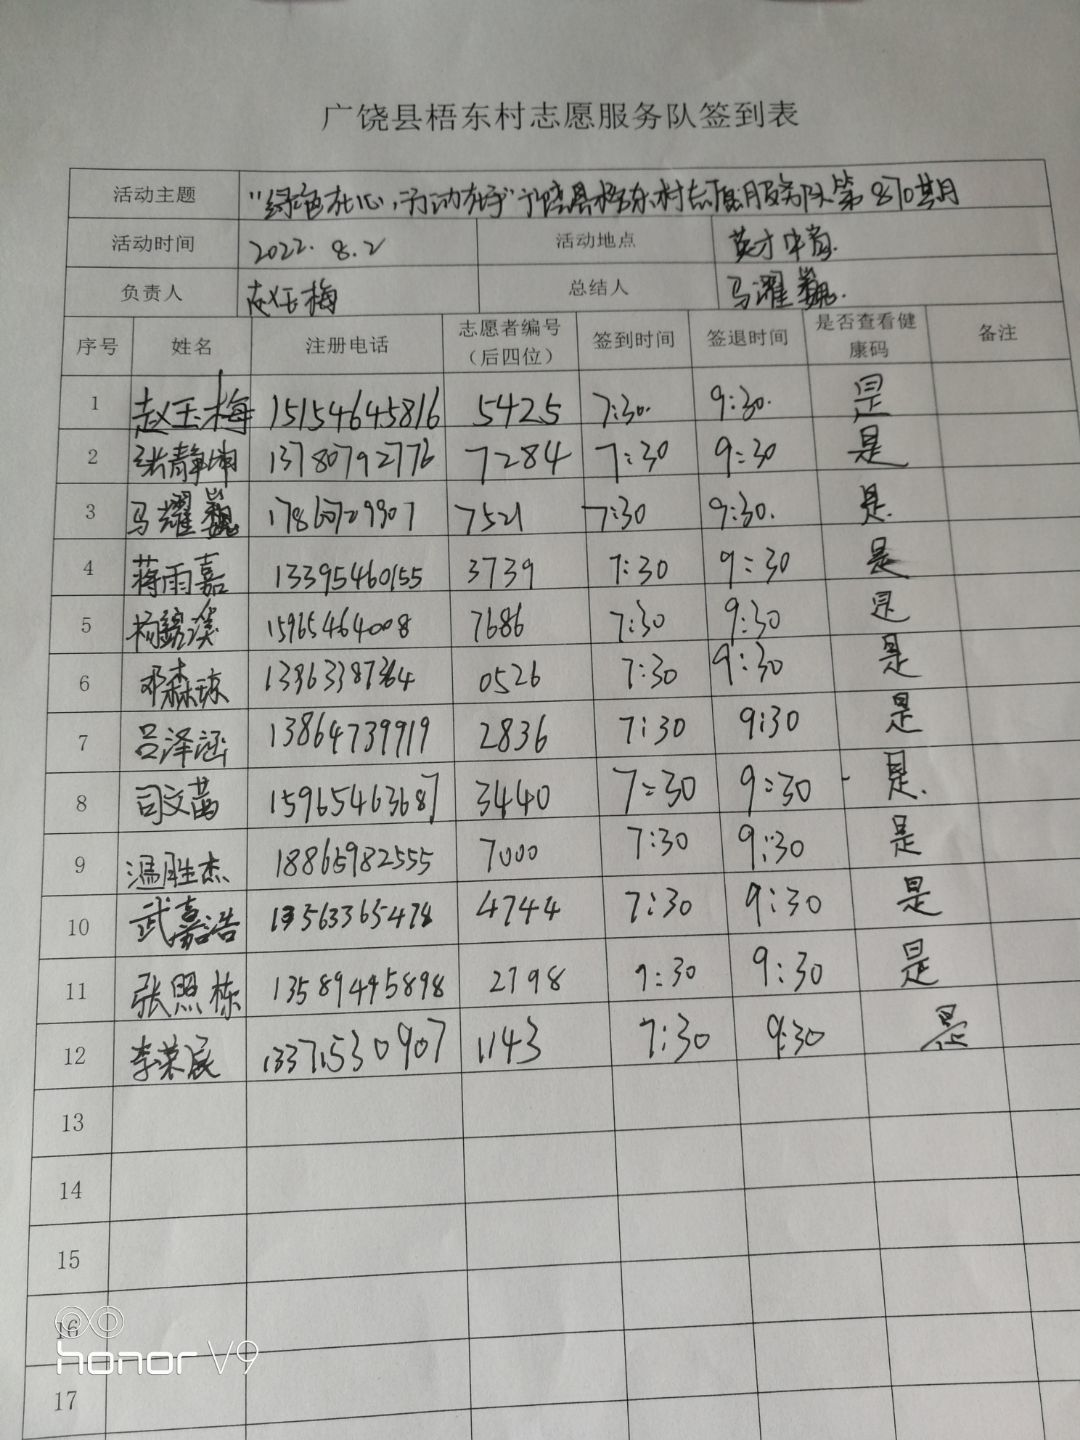 广饶县梧东村志愿服务队签到表
活动主题 "绿色在心,行动在手"广饶县梧东村志愿服务队第870期
活动时间 2022.8.2 活动地点 英才中学
负责人 赵玉梅 总结人 马耀巍.
序号 姓名 注册电话 志愿者编号（后四位） 签到时间 签退时间 是否查看健康码 备注
1 赵玉梅 15154645816 5425 7:30. 9:30. 是
2 张静坤 13780792776 7284 7:30 9:30 是
3 马耀巍 17860729907 7521 7:30 9:30. 是.
4 蒋雨嘉 13395460155 3739 7:30 9:30 是
5 杨锦溪 15965464008 7686 7:30 9:30 是
6 邓森琼 0526 7:30 9:30 是
7 吕泽涵 13864739919 2836 7:30 9:30 是
8 司文茜 15965463687 3440 7:30 9:30 是.
9 冯胜杰 18865982555 7000 7:30 9:30 是
10 武嘉浩 13563365478 4744 7:30 9:30 是
11 张照栋 13589495898 2798 7:30 9:30 是
12 李荣展 13371530907 1143 7:30 9:30 是
13
14
15
16
17
honor V9